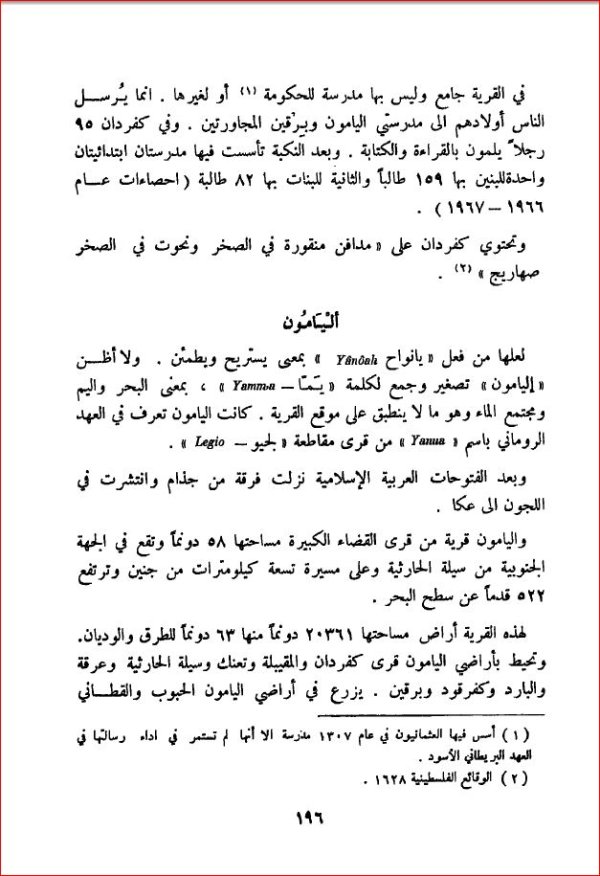 في القرية جامع وليس بها مدرسة للحكومة (١) أو لغيرها . انما يُرســل
الناس أولادهم الى مدرستي اليامون وبرقين المجاورتين . وفي كفردان ٩٥
رجلاً يلمون بالقراءة والكتابة . وبعد النكبة تأسست فيها مدرستان ابتدائيتان
واحدةللبنين بها ١٥٩ طالباً والثانية للبنات بها ٨٢ طالبة ( احصاءات عــام
١٩٦٦ – ١٩٦٧ ) .
وتحتوي كفردان على « مدافن منقورة في الصخر ونحوت في الصخر
صهاريج » (٢) .
أليَامُون
لعلها من فعل « يانواح Yânôah » بمعنى يستريح ويطمئن . ولا أظــن
« إليامون » تصغير وجمع لكلمة « يَـمّـا – Yamma » ، بمعنى البحر واليم
ومجتمع الماء وهو ما لا ينطبق على موقع القرية . كانت اليامون تعرف في العهد
الروماني باسم « Yanua » من قرى مقاطعة « لجيو – Legio » .
وبعد الفتوحات العربية الإسلامية نزلت فرقة من جذام وانتشرت في
اللجون الى عكا .
واليامون قرية من قرى القضاء الكبيرة مساحتها ٥٨ دونماً وتقع في الجهة
الجنوبية من سيلة الحارثية وعلى مسيرة تسعة كيلومترات من جنين وترتفع
٥٢٢ قدماً عن سطح البحر .
لهذه القرية أراض مساحتها ٢٠٣٦١ دونماً منها ٦٣ دونماً للطرق والوديان.
وتحيط بأراضي اليامون قرى كفردان والمقيبلة وتعنك وسيلة الحارثية وعرقة
والبارد وكفرقود وبرقين . يزرع في أراضي اليامون الحبوب والقطــاني
( ١ ) أسس فيها العثمانيون في عام ١٣٠٧ مدرسة الا أنها لم تستمر في اداء رسالتها في
العهد البريطاني الأسود .
( ٢ ) الوقائع الفلسطينية ١٦٢٨ .
١٩٦